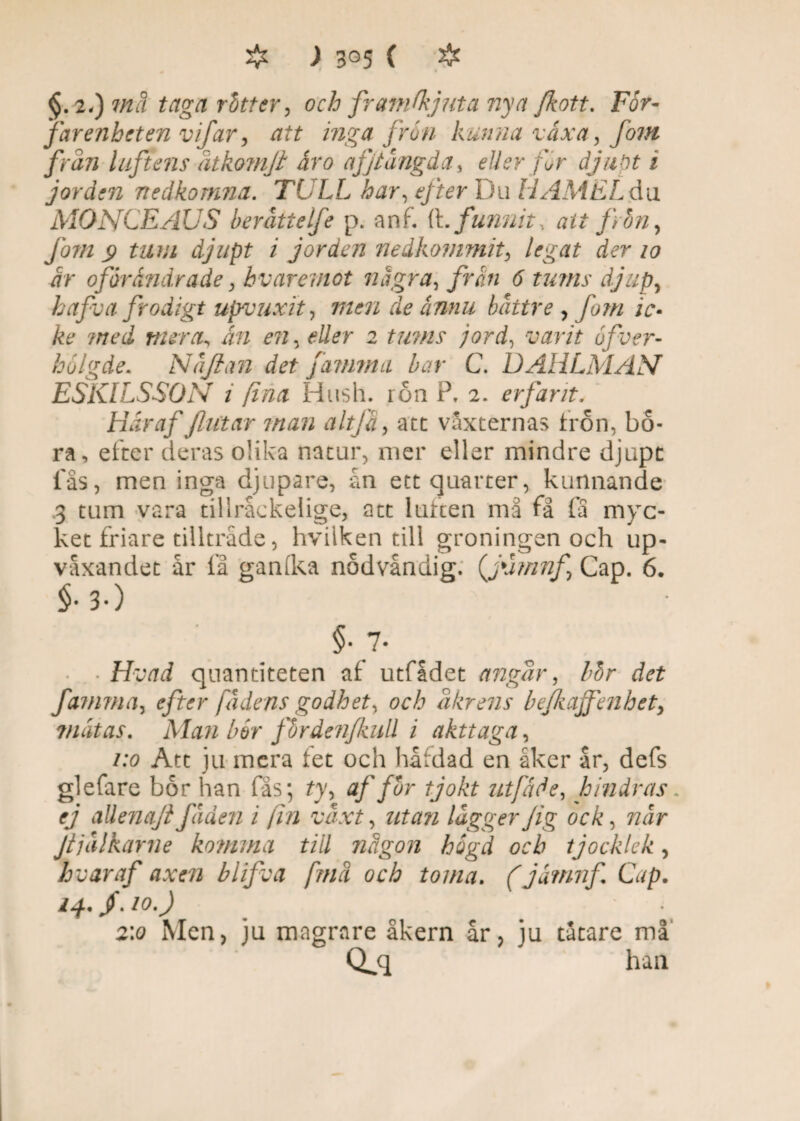 ☼ ) 305 ( ☼
§. 2.) må taga rötter, och framſkjuta nya ſkott. För-
farenheten viſar, att inga frön kunna våxa, ſom
från luftens åtkomſt äro afſtängda, eller för djupt i
jorden nedkomna. TULL har, efter Du HAMEL du
MONCEAUS beråttelſe p. anf. ſt. funnit, att frön,
ſom 9 tum djupt i jorden nedkommit, legat der 10
år oförändrade, hvaremot några, från 6 tums djup,
hafva frodigt upvuxit, men de ånnu båttre, ſom ic-
ke med mera, än en, eller 2 tums jord, varit öfver-
hölgde. Nåſtan det ſamma har C. DAHLMAN
ESKILSSON i ſina Hush. rön P. 2. erfarit.
Håraf ſlutar man altſå, att våxternas frön, bö-
ra, efter deras olika natur, mer eller mindre djupt
ſås, men inga djupare, ån ett quarter, kunnande
3 tum vara tillråckelige, att luften må få ſå myc-
ket friare tilltråde, hvilken till groningen och up-
våxandet år ſå ganſka nödvåndig. (jåmnf, Cap. 6.
§. 3.)
§. 7.
Hvad quantiteten af utſådet angår, bör det
ſamma, efter ſådens godhet, och åkrens beſkaffenhet,
måtas. Man bör fördenſkull i akttaga,
1:o Att ju mera fet och håfdad en åker år, deſs
gleſare bör han ſås; ty, af för tjokt utſåde, hindras
ej allenaſt ſåden i ſin våxt, utan lågger ſig ock, når
ſtjålkarne komma till någon högd och tjocklek,
hvaraf axen blifva ſmå och toma. (jåmnf. Cap.
14. §. 10.)
2:o Men, ju magrare åkern år, ju tåtare må
Qq han